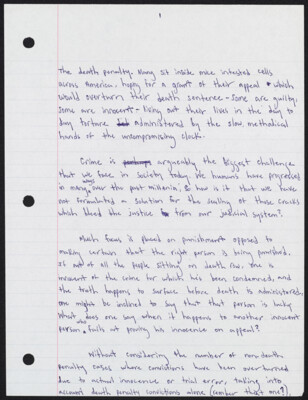 1
The death penalty. Many sit inside mice infested cells
across America, hoping for a grant of their appeal which
would overturn their death sentence - some are guilty.
some are innocent - living out their lives in the day to
day torture administered by the slow, methodical
hands of the uncompromising clock.
Crime is arguably the biggest challenge
that we face in society today. We humans have progressed
in many ways over the past millenia, so how is it that we have
not formulated a solution for the sealing of those cracks
which bleed the justice from our judicial system?
Much focus is placed on punishment opposed to
making certain that the right person is being punished.
If out of all the people sitting on death row. One is
innocent of the crime for which he's been condemned, and
the truth happens to surface before death is administered,
one might be inclined to say that that person is lucky.
What does one say when it happens to another innocent
person who fails at proving his innocence on appeal?
Without considering the number of non-death
penalty cases where convictions have been overturned
due to actual innocence or trial error, taking into
account death penalty convictions alone (number that one?),